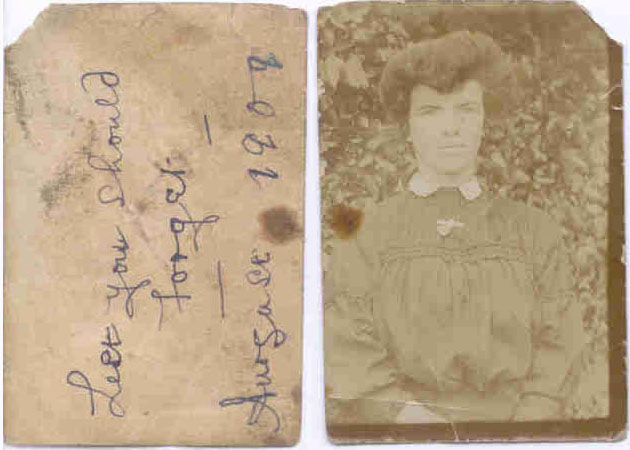 Lest you should
forget. —
August 1909